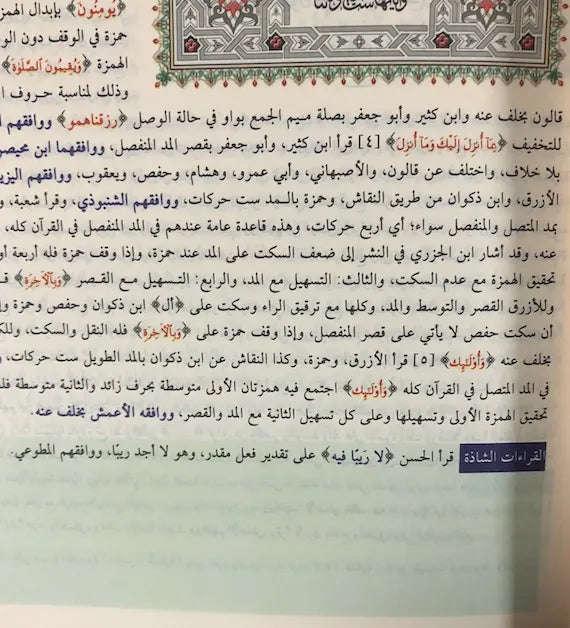 ﴿يُومِنُونَ﴾ بإبدال الهمز
حمزة في الوقف دون الو
الهمزة ﴿وَيُقِيمُونَ ٱلصَّلَوٰةَ﴾
وذلك لمناسبة حروف ا
قالون بخلف عنه وابن كثير وأبو جعفر بصلة ميم الجمع بواو في حالة الوصل ﴿رزقناهمو﴾ ووافقهم ا
للتخفيف ﴿بِمَآ أُنزِلَ إِلَيْكَ وَمَآ أُنزِلَ﴾ [٤] قرأ ابن كثير، وأبو جعفر بقصر المد المنفصل، ووافقهما ابن محيصن
بلا خلاف، واختلف عن قالون، والأصبهاني، وأبي عمرو، وهشام، وحفص، ويعقوب، ووافقهم اليزي
الأزرق، وابن ذكوان من طريق النقاش، وحمزة بالمد ست حركات، ووافقهم الشنبوذي، وقرأ شعبة، و
بمد المتصل والمنفصل سواء؛ أي أربع حركات، وهذه قاعدة عامة عندهم في المد المنفصل في القرآن كله،
عنه، وقد أشار ابن الجزري في النشر إلى ضعف السكت على المد عند حمزة، وإذا وقف حمزة فله أربعة أو
تحقيق الهمزة مع عدم السكت، والثالث: التسهيل مع المد، والرابع: التسهيل مع القصر ﴿وَبِٱلْأَخِرَةِ﴾ قـ
وللأزرق القصر والتوسط والمد، وكلها مع ترقيق الراء وسكت على ﴿أل﴾ ابن ذكوان وحفص وحمزة وإ
أن سكت حفص لا يأتي على قصر المنفصل، وإذا وقف حمزة على ﴿وَبِٱلْأَخِرَةِ﴾ فله النقل والسكت، وللك
بخلف عنه ﴿وَأُوْلَٰٓئِكَ﴾ [٥] قرأ الأزرق، وحمزة، وكذا النقاش عن ابن ذكوان بالمد الطويل ست حركات،
في المد المتصل في القرآن كله ﴿وَأُوْلَٰٓئِكَ﴾ اجتمع فيه همزتان الأولى متوسطة بحرف زائد والثانية متوسطة فلـ
تحقيق الهمزة الأولى وتسهيلها وعلى كل تسهيل الثانية مع المد والقصر، ووافقه الأعمش بخلف عنه.
القراءات الشاذة قرأ الحسن ﴿لا رَيبًا فيه﴾ على تقدير فعل مقدر، وهو لا أجد ريبًا، ووافقهم المطوعي.